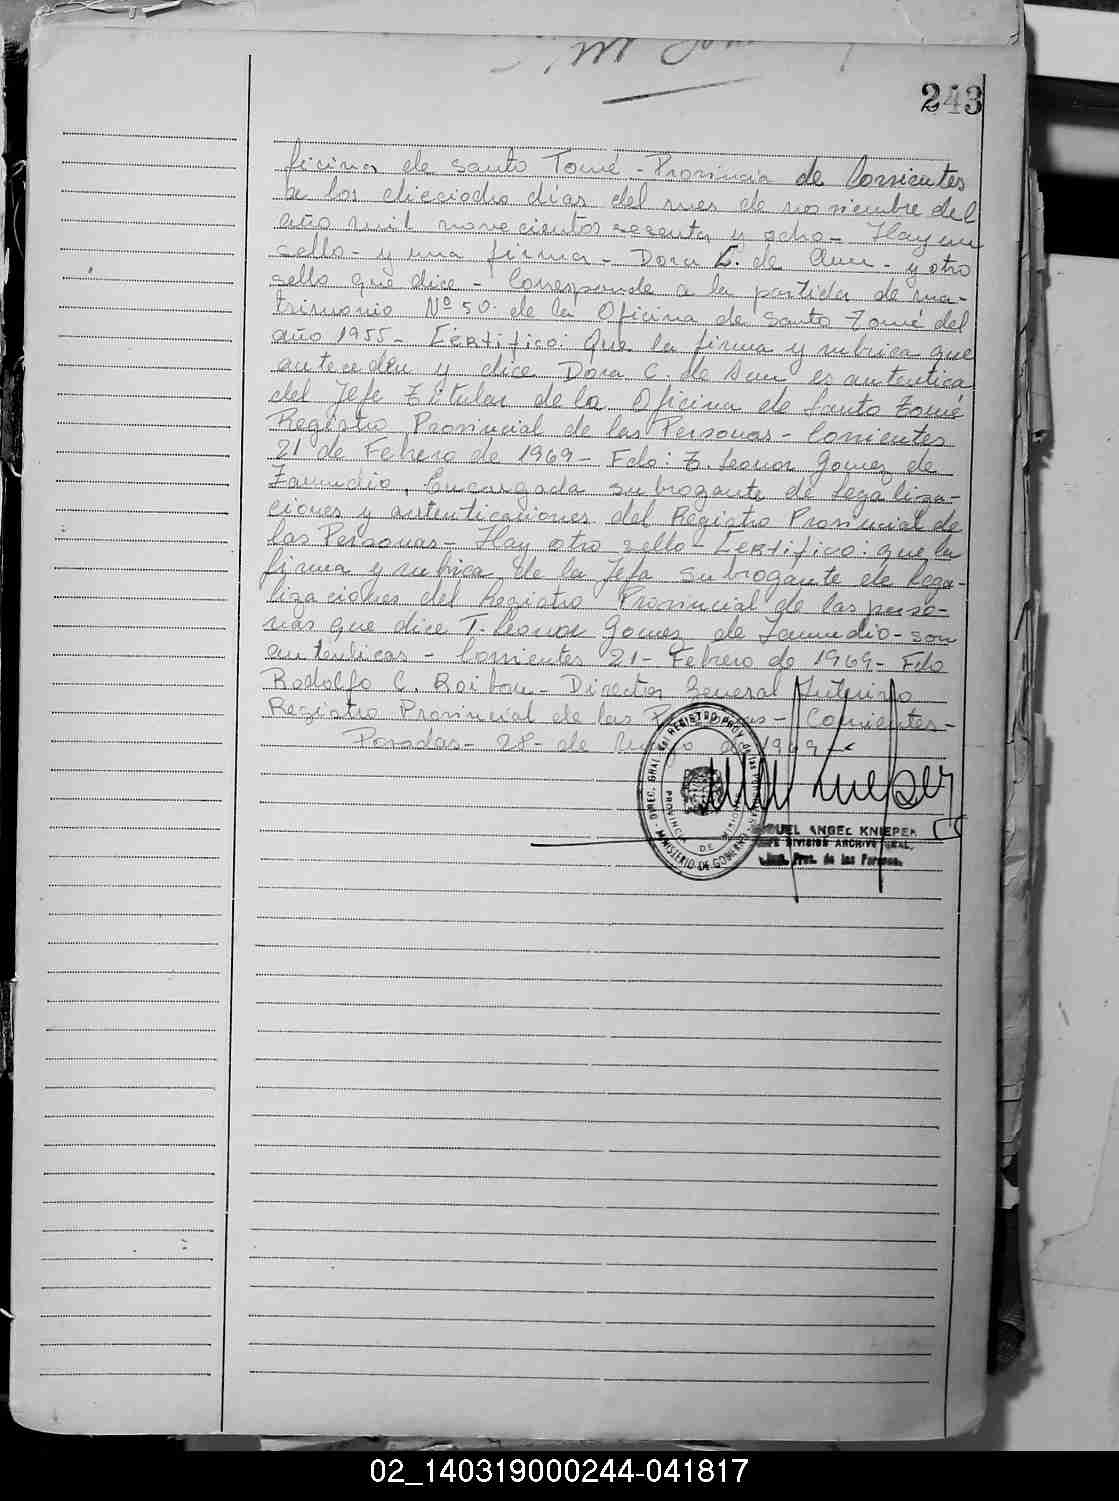 243
ficina de Santo Tomé - Provincia de Corrientes
a los dieciocho días del mes de noviembre del
año mil novecientos sesenta y ocho - Hay un
sello - y una firma - Dora C. de - y otro
sello que dice - Corresponde a la partida de ma-
trimonio Nº 50. de la Oficina de Santo Tomé del
año 1955 - Certifico: Que la firma y rubrica que
anteceden y dice Dora C. de es autentica
del Jefe Titular de la Oficina de Santo Tomé
Registro Provincial de las Personas - Corrientes
21 de Febrero de 1969 - Fdo: T. Leonor Gomez de
Zamudio, Encargada subrogante de Legaliza-
ciones y autenticaciones del Registro Provincial de
las Personas - Hay otro sello Certifico: que la
firma y rubrica de la Jefa subrogante de Lega-
lizaciones del Registro Provincial de las perso-
nas que dice T. Leonor Gomez de Zamudio - son
autenticas - Corrientes 21 - Febrero de 1969 - Fdo
Rodolfo C. - Director General Interino
Registro Provincial de las Personas - Corrientes -
Posadas - 28 - de de 1969 -
DIREC. GRAL. del REGISTRO PROV. de las PERSONAS
PROVINCIA DE MISIONES
MINISTERIO DE GOBIERNO
MIGUEL ANGEL KNIEPER
JEFE DIVISION ARCHIVO GRAL.
Prov. de las Personas
02_140319000244-041817